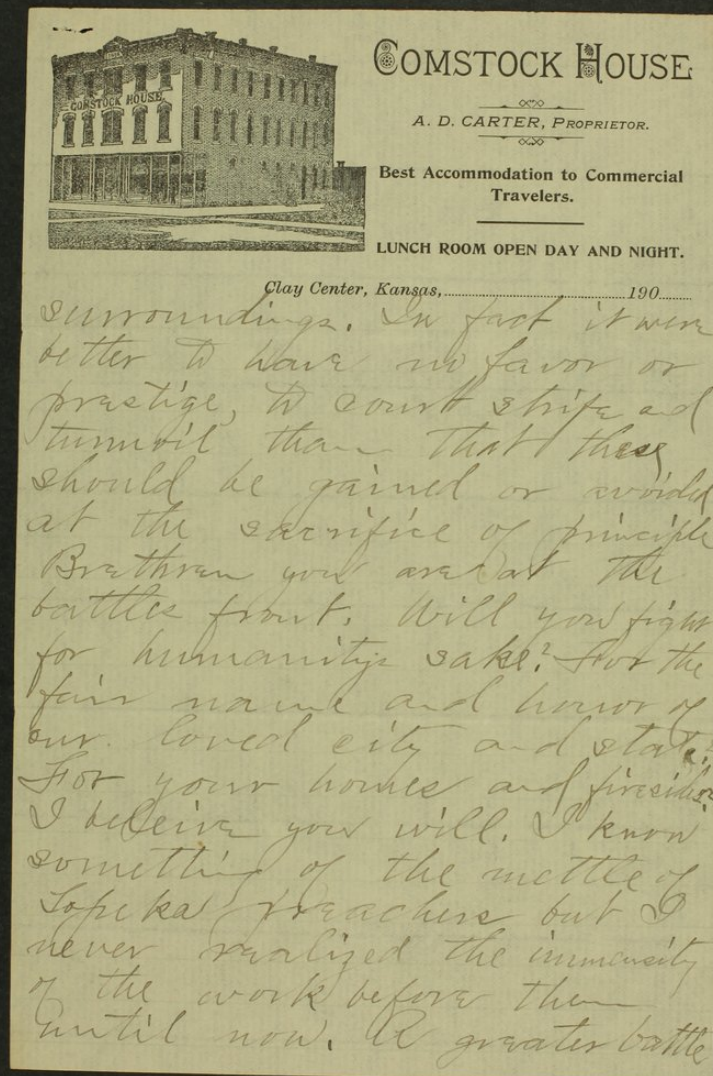 COMSTOCK HOUSE
COMSTOCK HOUSE
A. D. CARTER, PROPRIETOR.
Best Accommodation to Commercial
Travelers.
LUNCH ROOM OPEN DAY AND NIGHT.
Clay Center, Kansas, 190
surroundings. In fact it were
better to have no favor or
prestige, to court strife and
turmoil than that these
should be gained or avoided
at the sacrifice of principle
Brethren you are at the
battles front. Will you fight
for humanitys sake? For the
fair name and honor of
our loved city and state?
For your homes and firesides?
I beleive you will. I know
something of the mettle of
Topeka preachers but I
never realized the immensity
of the work before them
until now. A greater battle